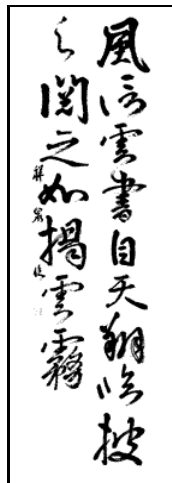 風信雲書自天翔臨披
之閱之如揭雲霧